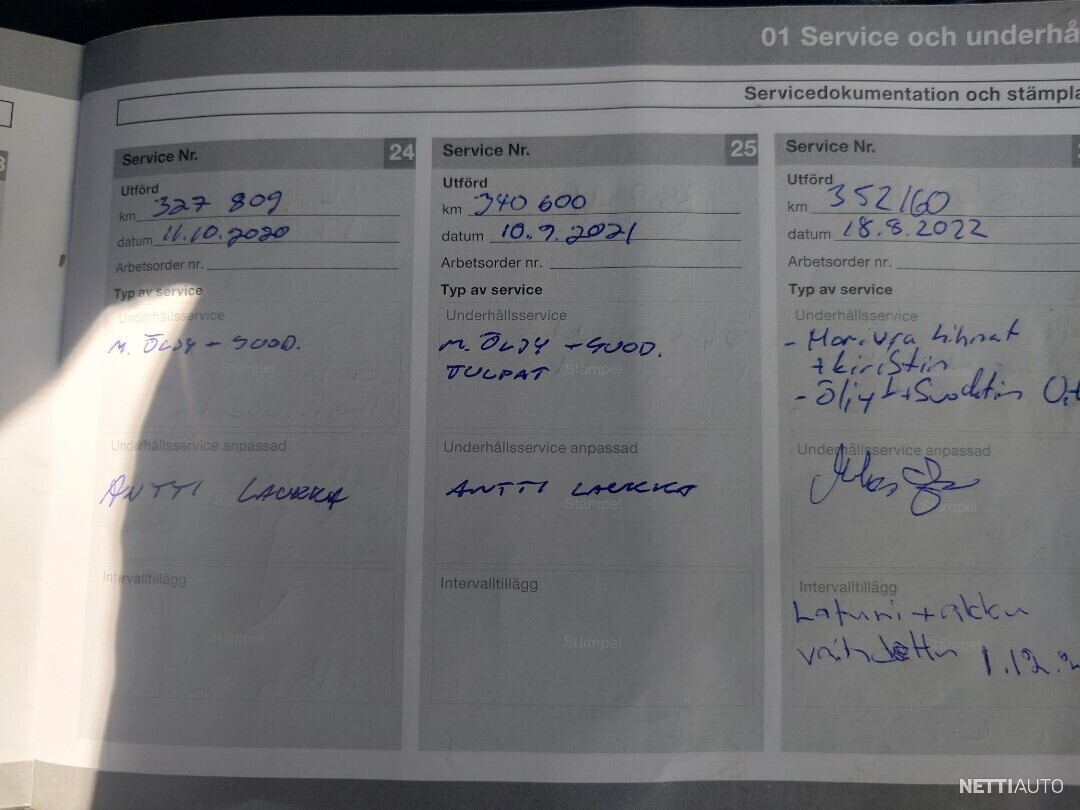 01 Service och underhå
Servicedokumentation och stämpla
Service Nr. 24
Utförd
km 327 809
datum 11.10.2020
Arbetsorder nr.
Typ av service
Underhållsservice
M. ÖLJY + SUOD.
Stämpel
Underhållsservice anpassad
ANTTI LAUKKA
Stämpel
Intervalltillägg
Stämpel
Service Nr. 25
Utförd
km 340 600
datum 10.9.2021
Arbetsorder nr.
Typ av service
Underhållsservice
M. ÖLJY + SUOD.
TULPAT
Stämpel
Underhållsservice anpassad
ANTTI LAUKKA
Stämpel
Intervalltillägg
Stämpel
Service Nr.
Utförd
km 352160
datum 18.8.2022
Arbetsorder nr.
Typ av service
Underhållsservice
- Moniura hihnat
+ kiristin
- Öljyt + Suodatin
Underhållsservice anpassad
Intervalltillägg
Laturi + akku
vaihdettu 1.12.2
NETTIAUTO